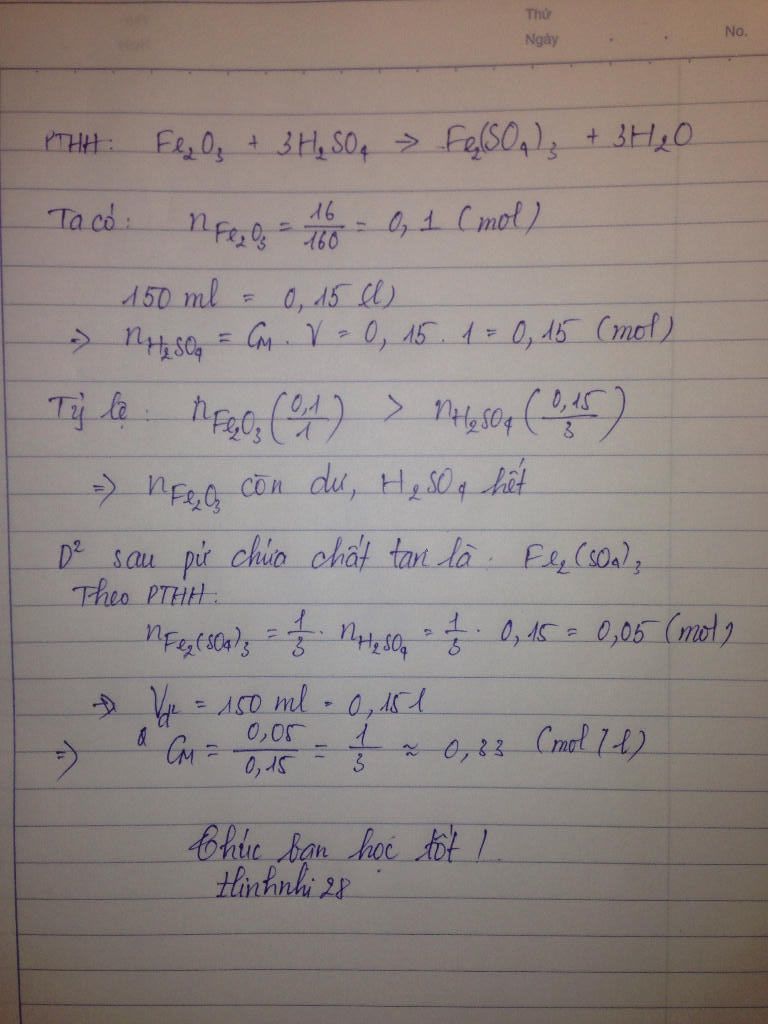 Thứ
Ngày . . No.
PTHH: Fe₂O₃ + 3H₂SO₄ → Fe₂(SO₄)₃ + 3H₂O
Ta có: n Fe₂O₃ = 16/160 = 0,1 (mol)
150 ml = 0,15 (l)
=> n H₂SO₄ = CM . V = 0,15 . 1 = 0,15 (mol)
Tỷ lệ: n Fe₂O₃ (0,1/1) > n H₂SO₄ (0,15/3)
=> n Fe₂O₃ còn dư, H₂SO₄ hết
D² sau pứ chứa chất tan là : Fe₂(SO₄)₃
Theo PTHH:
n Fe₂(SO₄)₃ = 1/3 . n H₂SO₄ = 1/3 . 0,15 = 0,05 (mol)
=> V = 150 ml = 0,15 l
=> CM = 0,05/0,15 = 1/3 ≈ 0,33 (mol/l)
Chúc bạn học tốt !
Hinhnhi 28